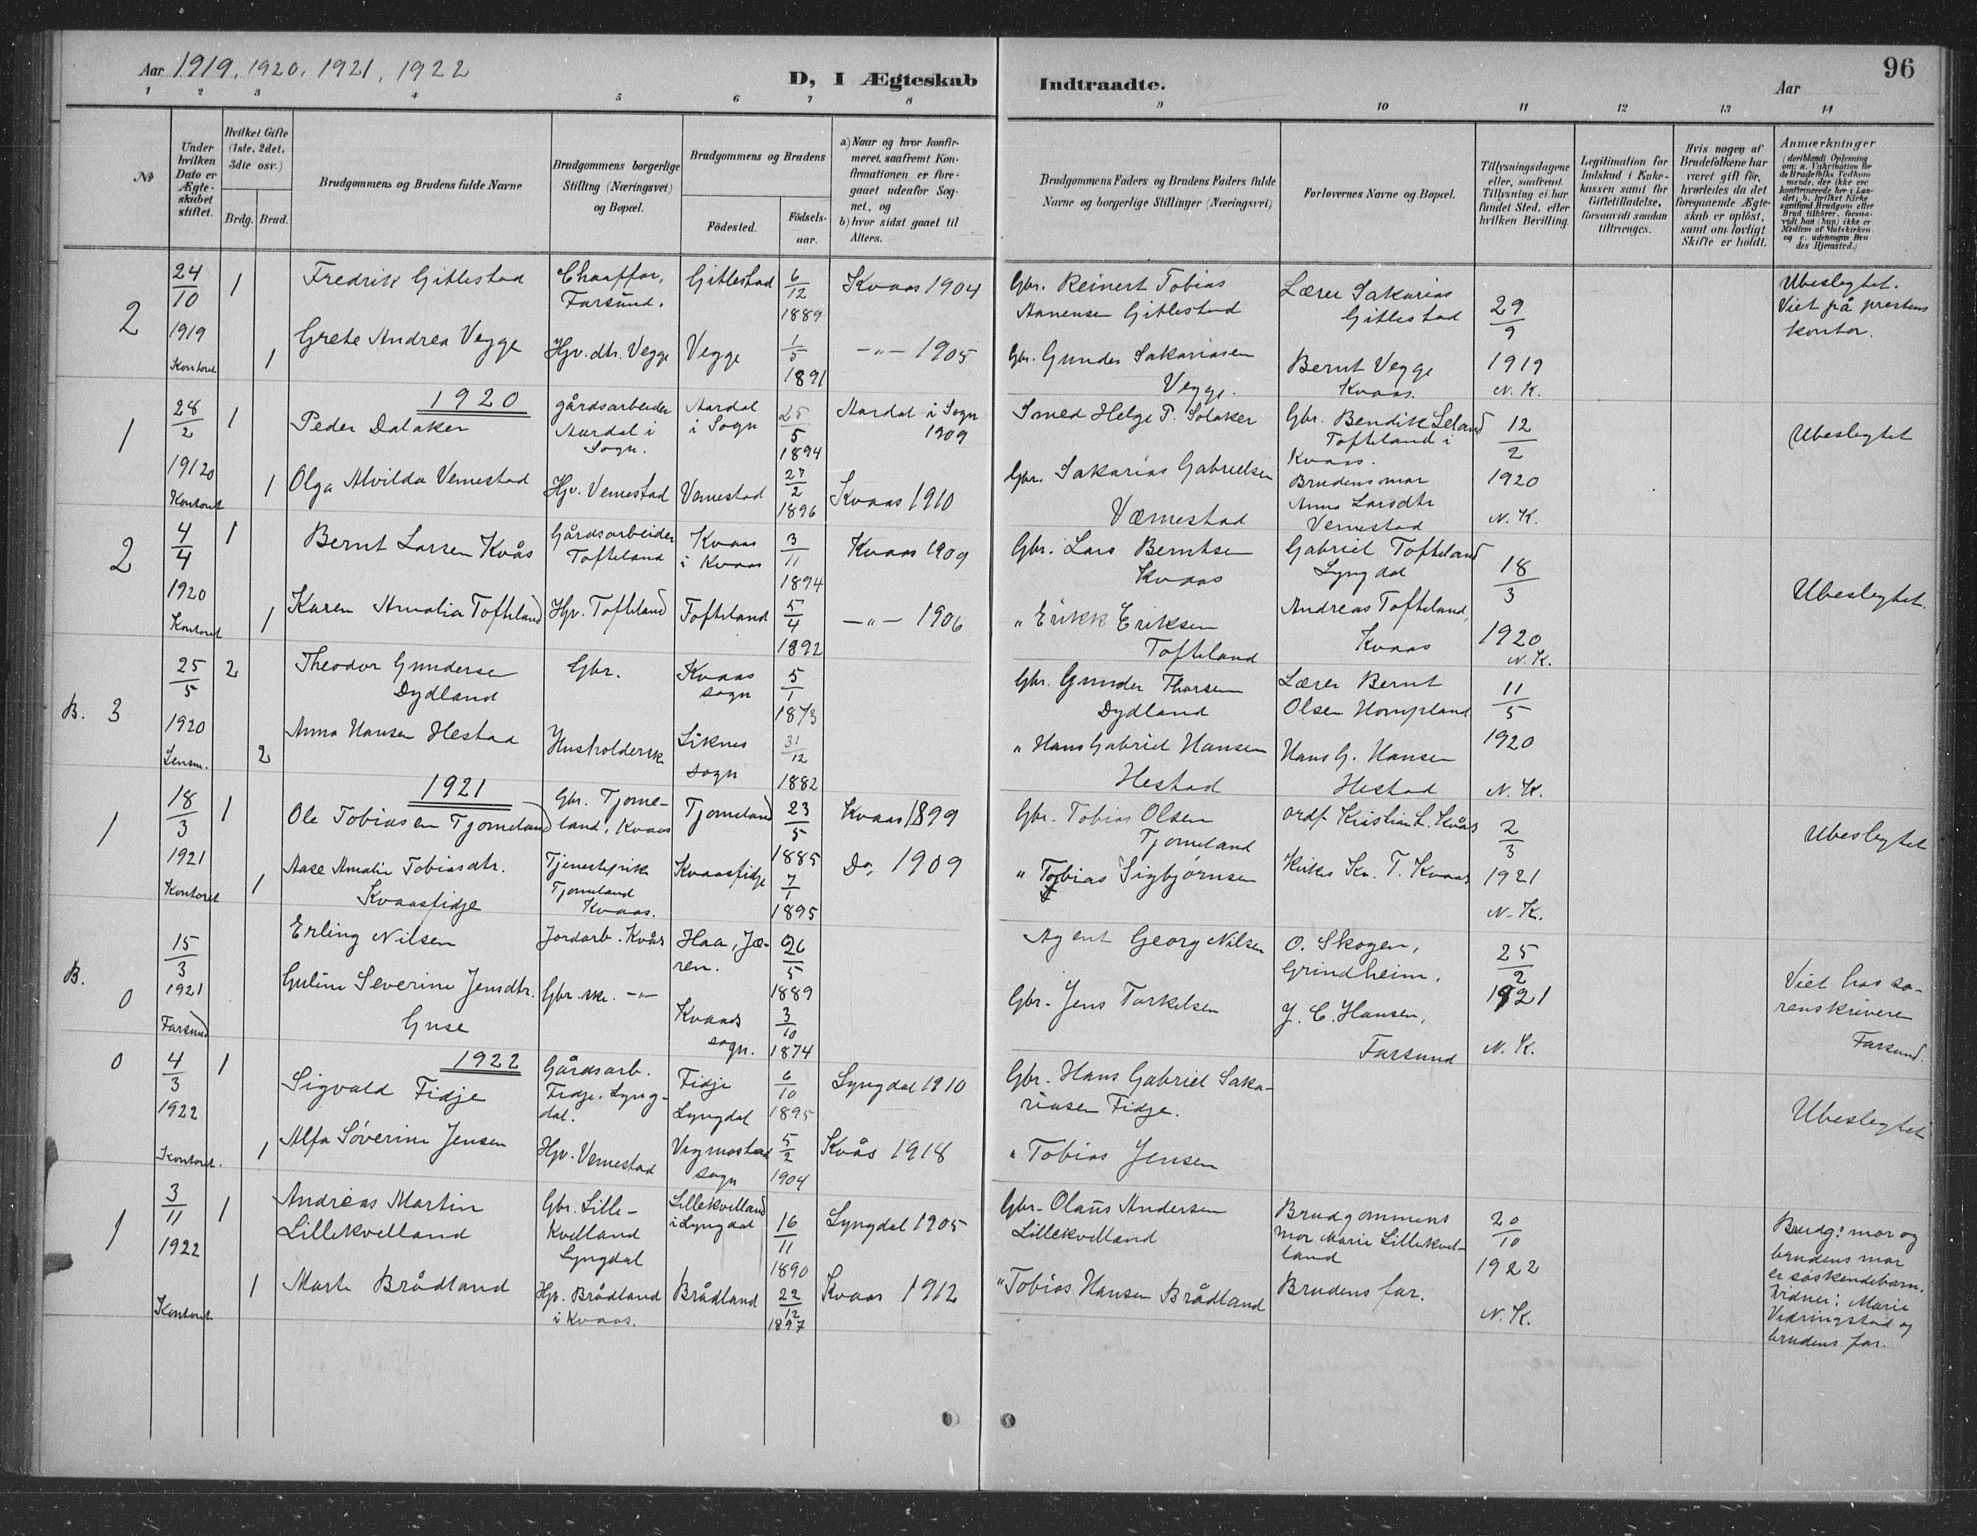 Aar 1919, 1920, 1921, 1922
D, I Ægteskab Indtraadte.
Aar
96
1 2 3 4 5 6 7 8 9 10 11 12 13 14
No
Under hvilken Dato er Ægteskabet stiftet.
Hvilket Gifte (1ste, 2det, 3die osv.)
Brdg. Brud.
Brudgommens og Brudens fulde Navne
Brudgommens borgerlige Stilling (Næringsvei) og Bopæl.
Brudgommens og Brudens
Fødested.
Fødselsaar.
a) Naar og hvor konfirmeret, saafremt Konfirmationen er foregaaet udenfor Sognet, og
b) hvor sidst gaaet til Alters.
Brudgommens Faders og Brudens Faders fulde Navne og borgerlige Stillinger (Næringsvei)
Forlovernes Navne og Bopæl.
Tillysningsdagene eller, saafremt Tillysning ei har fundet Sted, efter hvilken Bevilling.
Legitimation for Indskud i Enkekassen samt for Giftetilladelse, forsaavidt saadan tiltrænges.
Hvis nogen af Brudefolkene har været gift før, hvorledes da det foregaaende Ægteskab er opløst, samt om lovligt Skifte er holdt.
Anmærkninger
2
24/10 1919 Kontoret
1 Fredrik Gitlestad Chaaffør, Farsund. Gitlestad 6/12 1889 Kvaas 1904
Gbr. Reinert Tobias Aanensen Gitlestad
Lærer Sakarias Gitlestad
29/9 1919 N. K.
Ubeslegtet. Viet på prestens kontor.
1 Grete Andrea Vegge Hjv. dtr. Vegge Vegge 1/5 1891 -"- 1905
Gbr. Gunder Sakariasen Vegge.
Bernt Vegge Kvaas.
1920
1
28/2 1920 Kontoret
1 Peder Dalaker gårdsarbeider Aardal i Sogn. Aardal i Sogn 25/5 1894 Aardal i Sogn 1909
Smed Helge P. Solaker
Gbr. Bendik Leland Tofteland i Kvaas.
12/2 1920 N. K.
Ubeslegtet
1 Olga Alvilda Vemestad Hjv. Vemestad Vemestad 27/2 1896 Kvaas 1910
Gbr. Sakarias Gabrielsen Væmestad
Brudens mor Anna Larsdtr Vemestad
2
4/4 1920 Kontoret
1 Bernt Larsen Kvås Gårdsarbeider Tofteland Kvaas i Kvaas 3/11 1894 Kvaas 1909
Gbr. Lars Berntsen Kvaas
Gabriel Tofteland Lyngdal
18/3 1920 N. K.
Ubeslegtet.
1 Karen Amalia Tofteland Hjv. Tofteland Tofteland 5/4 1892 -"- 1906
" Erikk Eriksen Tofteland
Andreas Tofteland, Kvaas
B. 3
25/5 1920 Lensm.
2 Theodor Gundersen Dydland Gbr. Kvaas sogn 5/1 1873
Gbr. Gunder Thorsen Dydland
Lærer Bernt Olsen Hompland
11/5 1920 N. K.
2 Anna Hansen Hestad Husholderske Liknes sogn 31/12 1882
" Hans Gabriel Hansen Hestad
Hans G. Hansen Hestad
1921
1
18/3 1921 Kontoret
1 Ole Tobiasen Tjomeland Gbr. Tjomeland, Kvaas Tjomeland 23/5 1885 Kvaas 1899
Gbr. Tobias Olsen Tjomeland
Ordf. Kristian L. Kvås
2/3 1921 N. K.
Ubeslegtet
1 Aase Amalie Tobiasdtr. Kvaasfidje Tjenestepike Tjomeland Kvaas. Kvaasfidje 7/1 1895 Do, 1909
" Tobias Sigbjørnsen
Kirkes. Kr. T. Kvaas
B. 0
15/3 1921 Farsund
Erling Nilsen Jordarb. Kvås Haa, Jæren. 26/5 1889
Agent Georg Nilsen
O. Skogen, Grindheim.
25/2 1921 N. K.
Viet hos sorenskriveren Farsund.
Guline Severine Jensdtr. Guse Gbr.ske. -"- Kvaas sogn. 3/10 1874
Gbr. Jens Torkelsen
J. C. Hansen, Farsund
1922
0
4/3 1922 Kontoret.
1 Sigvald Fidje Gårdsarb. Fidje, Lyngdal. Fidje Lyngdal 6/10 1895 Lyngdal 1910
Gbr. Hans Gabriel Sakariasen Fidje.
Ubeslegtet
1 Alfa Søverine Jensen Hjv. Vemestad Vigmostad sogn 5/2 1904 Kvås 1918
" Tobias Jensen
1
3/11 1922 Kontoret
1 Andreas Martin Lillekvelland Gbr. Lillekvelland Lyngdal Lillekvelland i Lyngdal 16/11 1890 Lyngdal 1905
Gbr. Olaus Andersen Lillekvelland
Brudgommens mor Marie Lillekvelland
20/10 1922 N. K.
Brudg: mor og brudens mor er søskendebarn. Vidner: Marie Vedringstad og brudens far.
1 Marte Brådland Hjv. Brådland i Kvaas. Brådland 22/12 1897 Kvaas 1912
" Tobias Hansen Brådland
Brudens far.